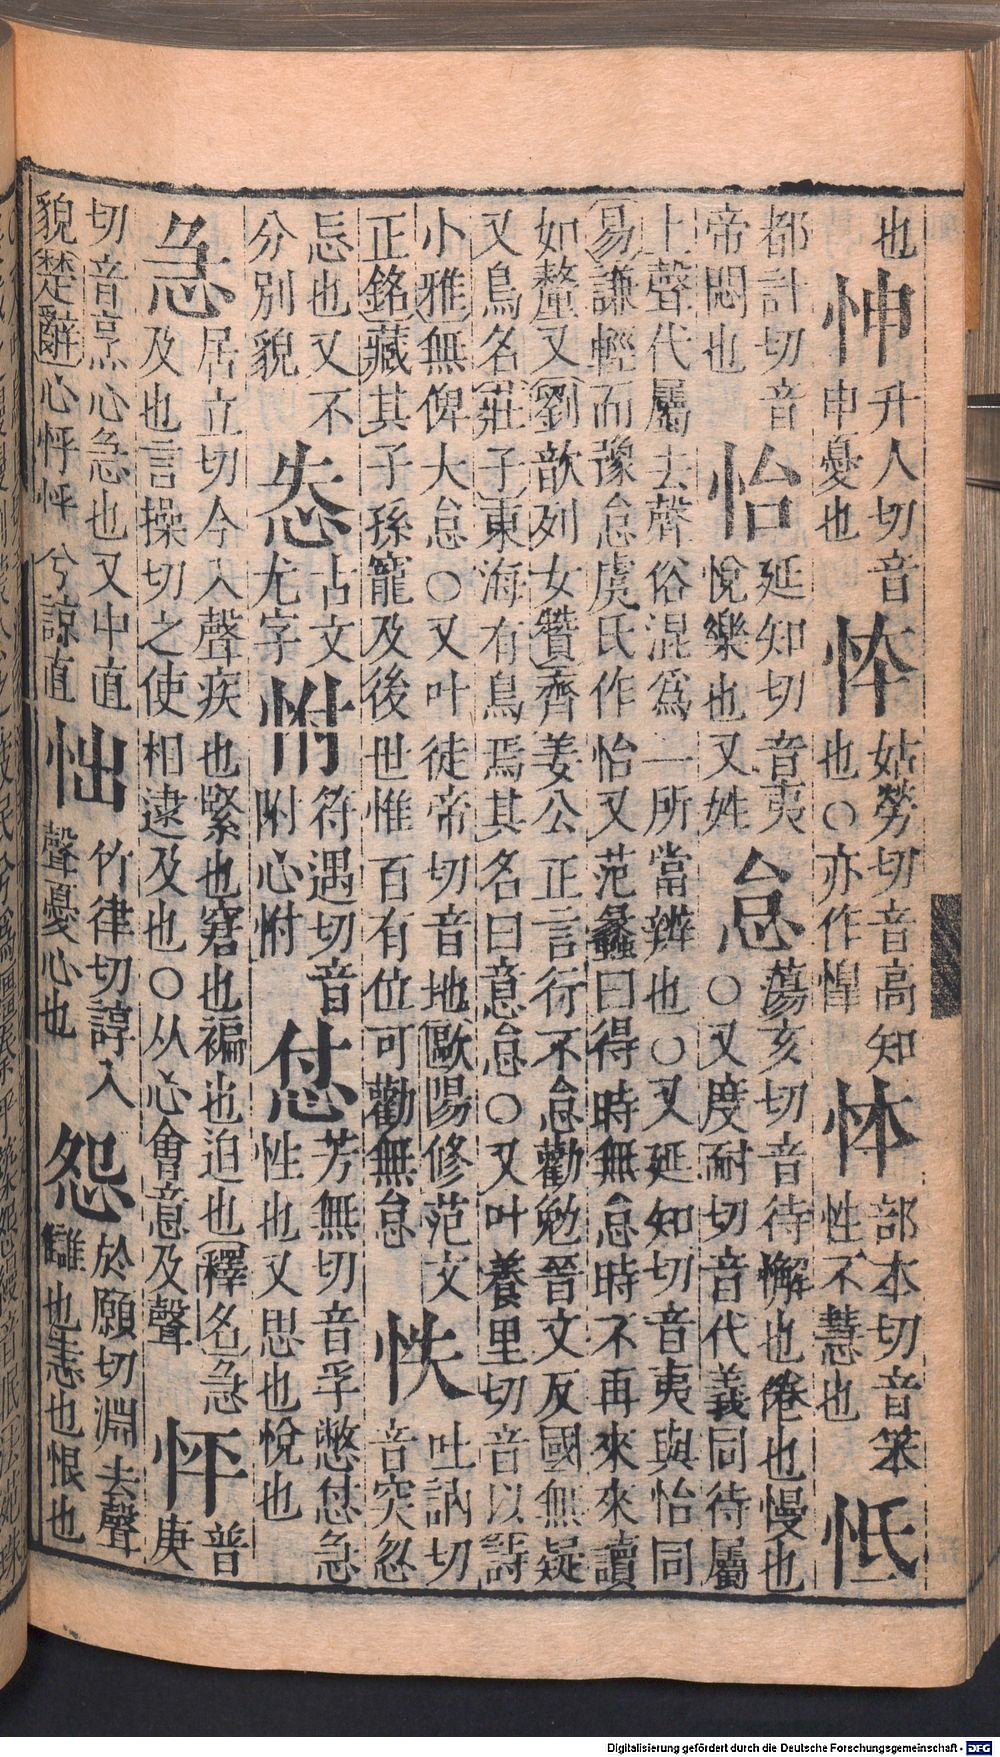 也
升人切音
申憂也
姑勞切音高知
也○亦作惶
㤓
部本切音笨
性不慧也
怟
都計切音
帝悶也
怡
延知切音夷
悅樂也又姓
怠
蕩亥切音待懈也倦也慢也
○又度耐切音代義同待屬
上聲代屬去聲俗混爲一所當辨也○又延知切音夷與怡同
易謙輕而豫怠虞氏作怡又范蠡曰得時無怠時不再來來讀
如釐又劉歆列女贊齊姜公正言行不怠勸勉晉文反國無疑
又鳥名莊子東海有鳥焉其名曰意怠○又叶養里切音以詩
小雅無俾大怠○又叶徒帝切音地歐陽修范文
正銘藏其子孫寵及後世惟百有位可勸無怠
怢
吐訥切
音突忽
忘也又不
分別貌
怣
古文
尤字
㤔
符遇切音
附心㤔
怤
芳無切音孚憋怤急
性也又思也悅也
急
居立切今入聲疾也緊也窘也褊也迫也釋名急
及也言操切之使相逮及也○从心會意及聲
怦
普
庚
切音烹心急也又中直
貌楚辭心怦怦兮諒直
㤕
竹律切諄入
聲憂心也
怨
於願切淵去聲
讎也恚也恨也
Digitalisierung gefördert durch die Deutsche Forschungsgemeinschaft - DFG